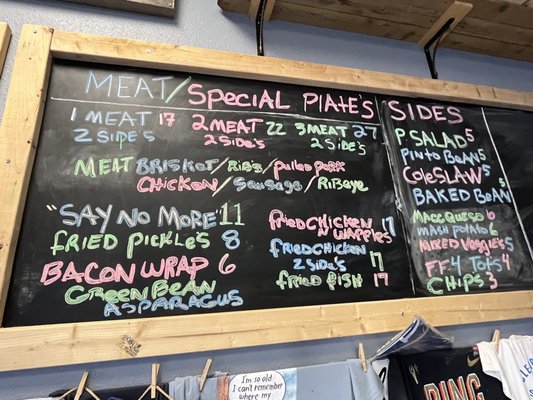 MEAT/SPECIAL PLATE'S
1 MEAT 17 2 MEAT 22 3 MEAT 27
2 SIDE'S 2 SIDE'S 2 SIDE'S
MEAT BRISKET/RIB'S/PULLED PORK
CHICKEN/SAUSAGE/RIBEYE
"SAY NO MORE" 11
FRIED PICKLES 8
BACON WRAP 6
GREEN BEAN
ASPARAGUS
FRIED CHICKEN 17
N WAFFLES
FRIED CHICKEN 17
2 SIDE'S
FRIED FISH 17
SIDES
P. SALAD 5
PINTO BEAN 5
COLESLAW 5
BAKED BEAN 5
MACC QUESO 6
MASH POTATO 6
MIXED VEGGIES 5
FF 4 TOTS 4
CHIPS 3
I'm so old
I can't remember
where my